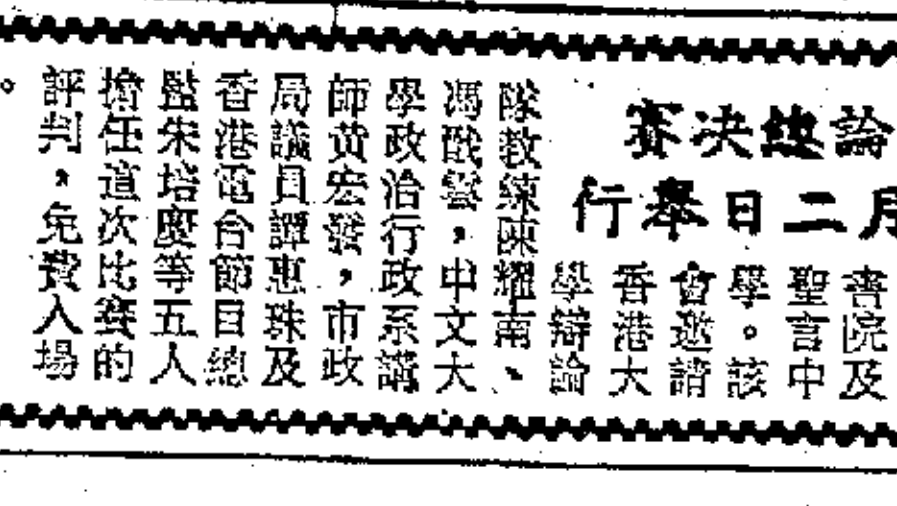 論總決賽
月二日舉行
書院及
聖言中
學。該
會邀請
香港大
學辯論
隊教練陳耀南、
馮戩雲，中文大
學政治行政系講
師黃宏發，市政
局議員譚惠珠及
香港電台節目總
監朱培慶等五人
擔任這次比賽的
評判，免費入場
。